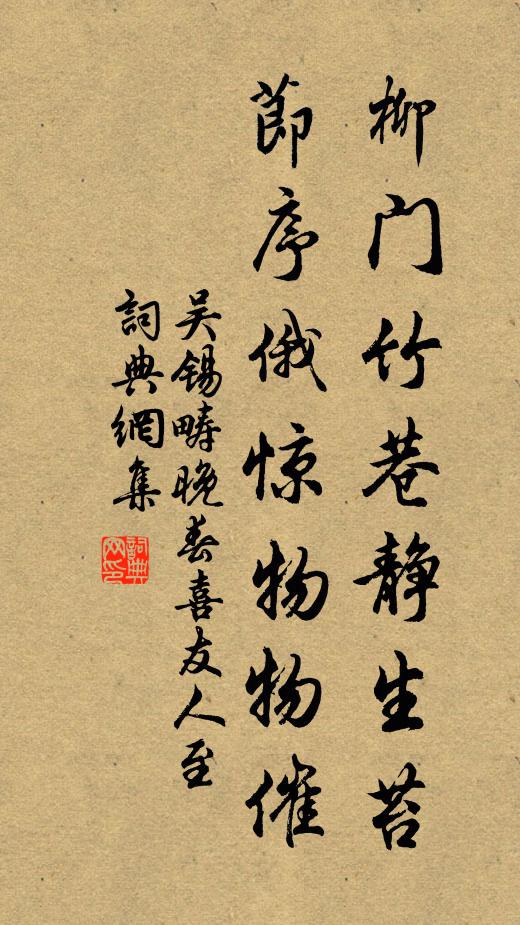 柳门竹巷静生苔
节序俄惊物物催
吴锡畴晚春喜友人至
詞典網集
詞典网印